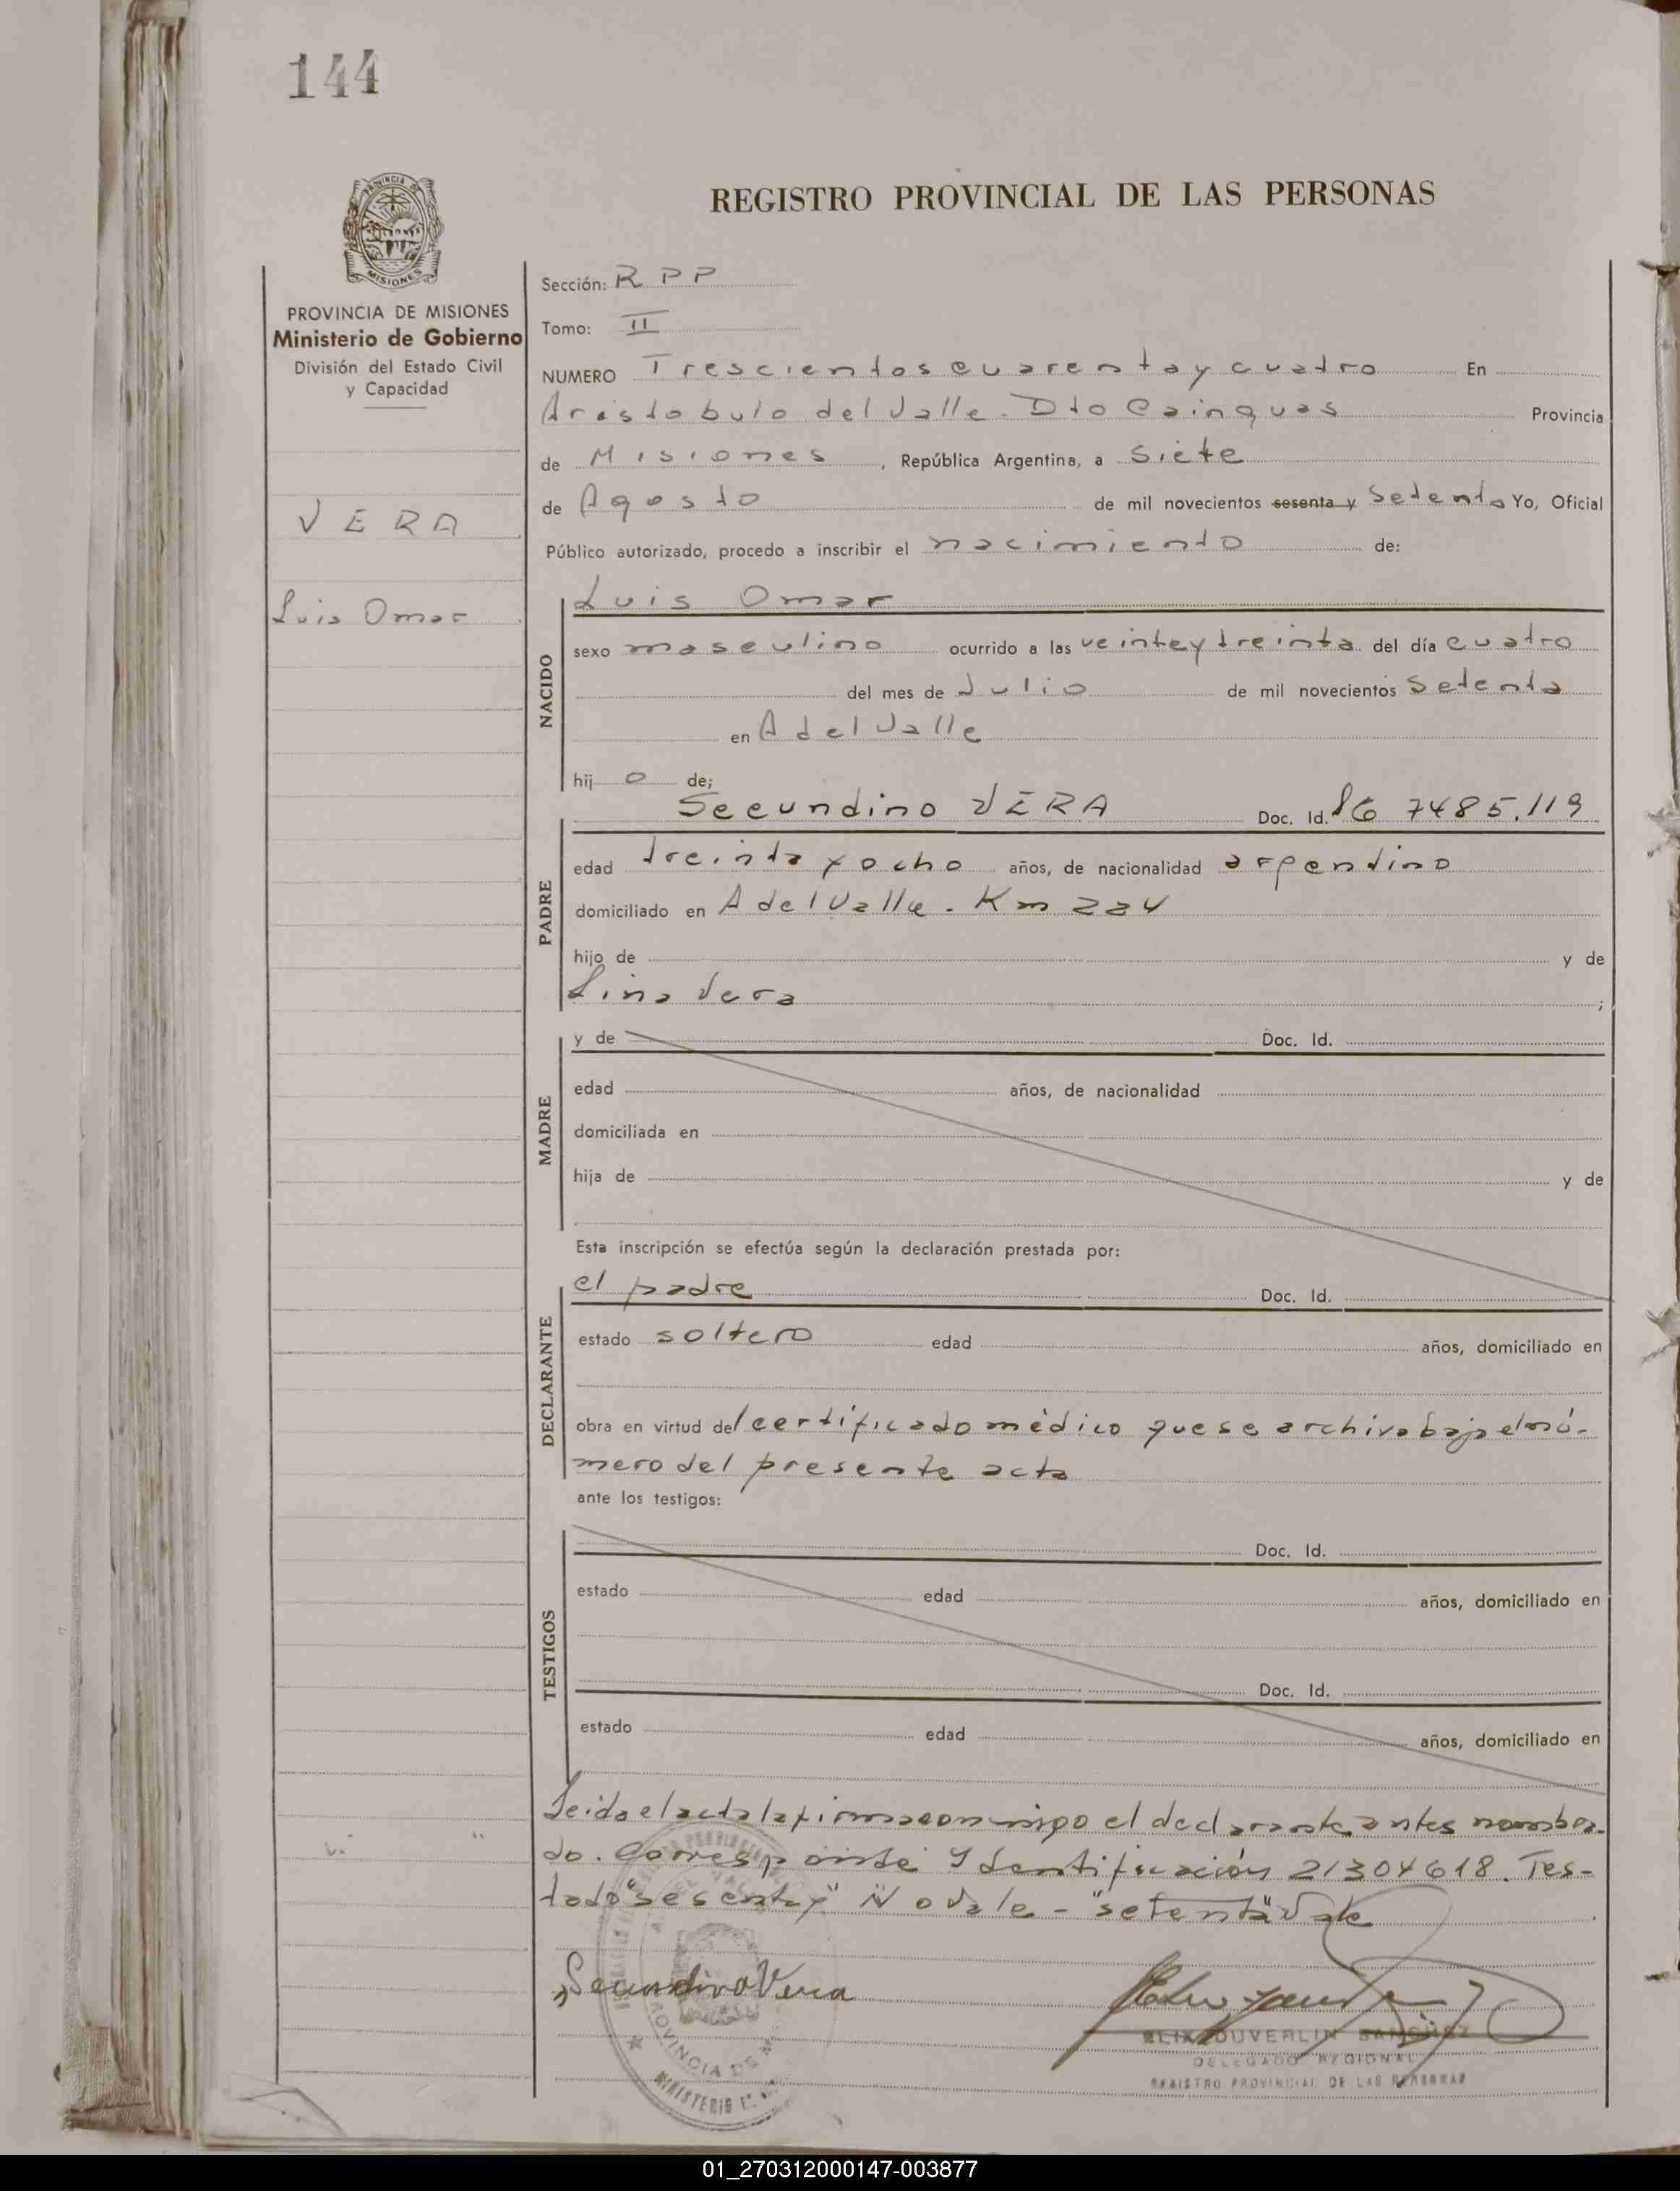 144
PROVINCIA DE
MISIONES
REGISTRO PROVINCIAL DE LAS PERSONAS
PROVINCIA DE MISIONES
Ministerio de Gobierno
División del Estado Civil
y Capacidad
VERA
Luis Omar
Sección: R P P
Tomo: II
NUMERO Trescientos cuarenta y cuatro En
Aristobulo del Valle. Dto Cainguas Provincia
de Misiones, República Argentina, a Siete
de Agosto de mil novecientos sesenta y Setenta Yo, Oficial
Público autorizado, procedo a inscribir el nacimiento de:
NACIDO
Luis Omar
sexo masculino ocurrido a las veinte y treinta del día cuatro
del mes de Julio de mil novecientos Setenta
en A del Valle
hij o de;
PADRE
Secundino VERA Doc. Id. 7485.119
edad treinta y ocho años, de nacionalidad argentino
domiciliado en A del Valle. Km 224
hijo de y de
Lina Vera ;
MADRE
y de Doc. Id.
edad años, de nacionalidad
domiciliada en
hija de y de
Esta inscripción se efectúa según la declaración prestada por:
DECLARANTE
el padre Doc. Id.
estado soltero edad años, domiciliado en
obra en virtud del certificado médico que se archiva bajo el nú-
mero del presente acta
ante los testigos:
TESTIGOS
Doc. Id.
estado edad años, domiciliado en
Doc. Id.
estado edad años, domiciliado en
Leida el acta la firma conmigo el declarante antes nombra-
do. Corresponde Identificación 21304618. Tes-
tado "sesenta y" No vale - "setenta" Vale
Secundino Vera
DUVERLIN SANCHEZ
DELEGADO REGIONAL
REGISTRO PROVINCIAL DE LAS PERSONAS
PROVINCIA DE
MINISTERIO
01_270312000147-003877